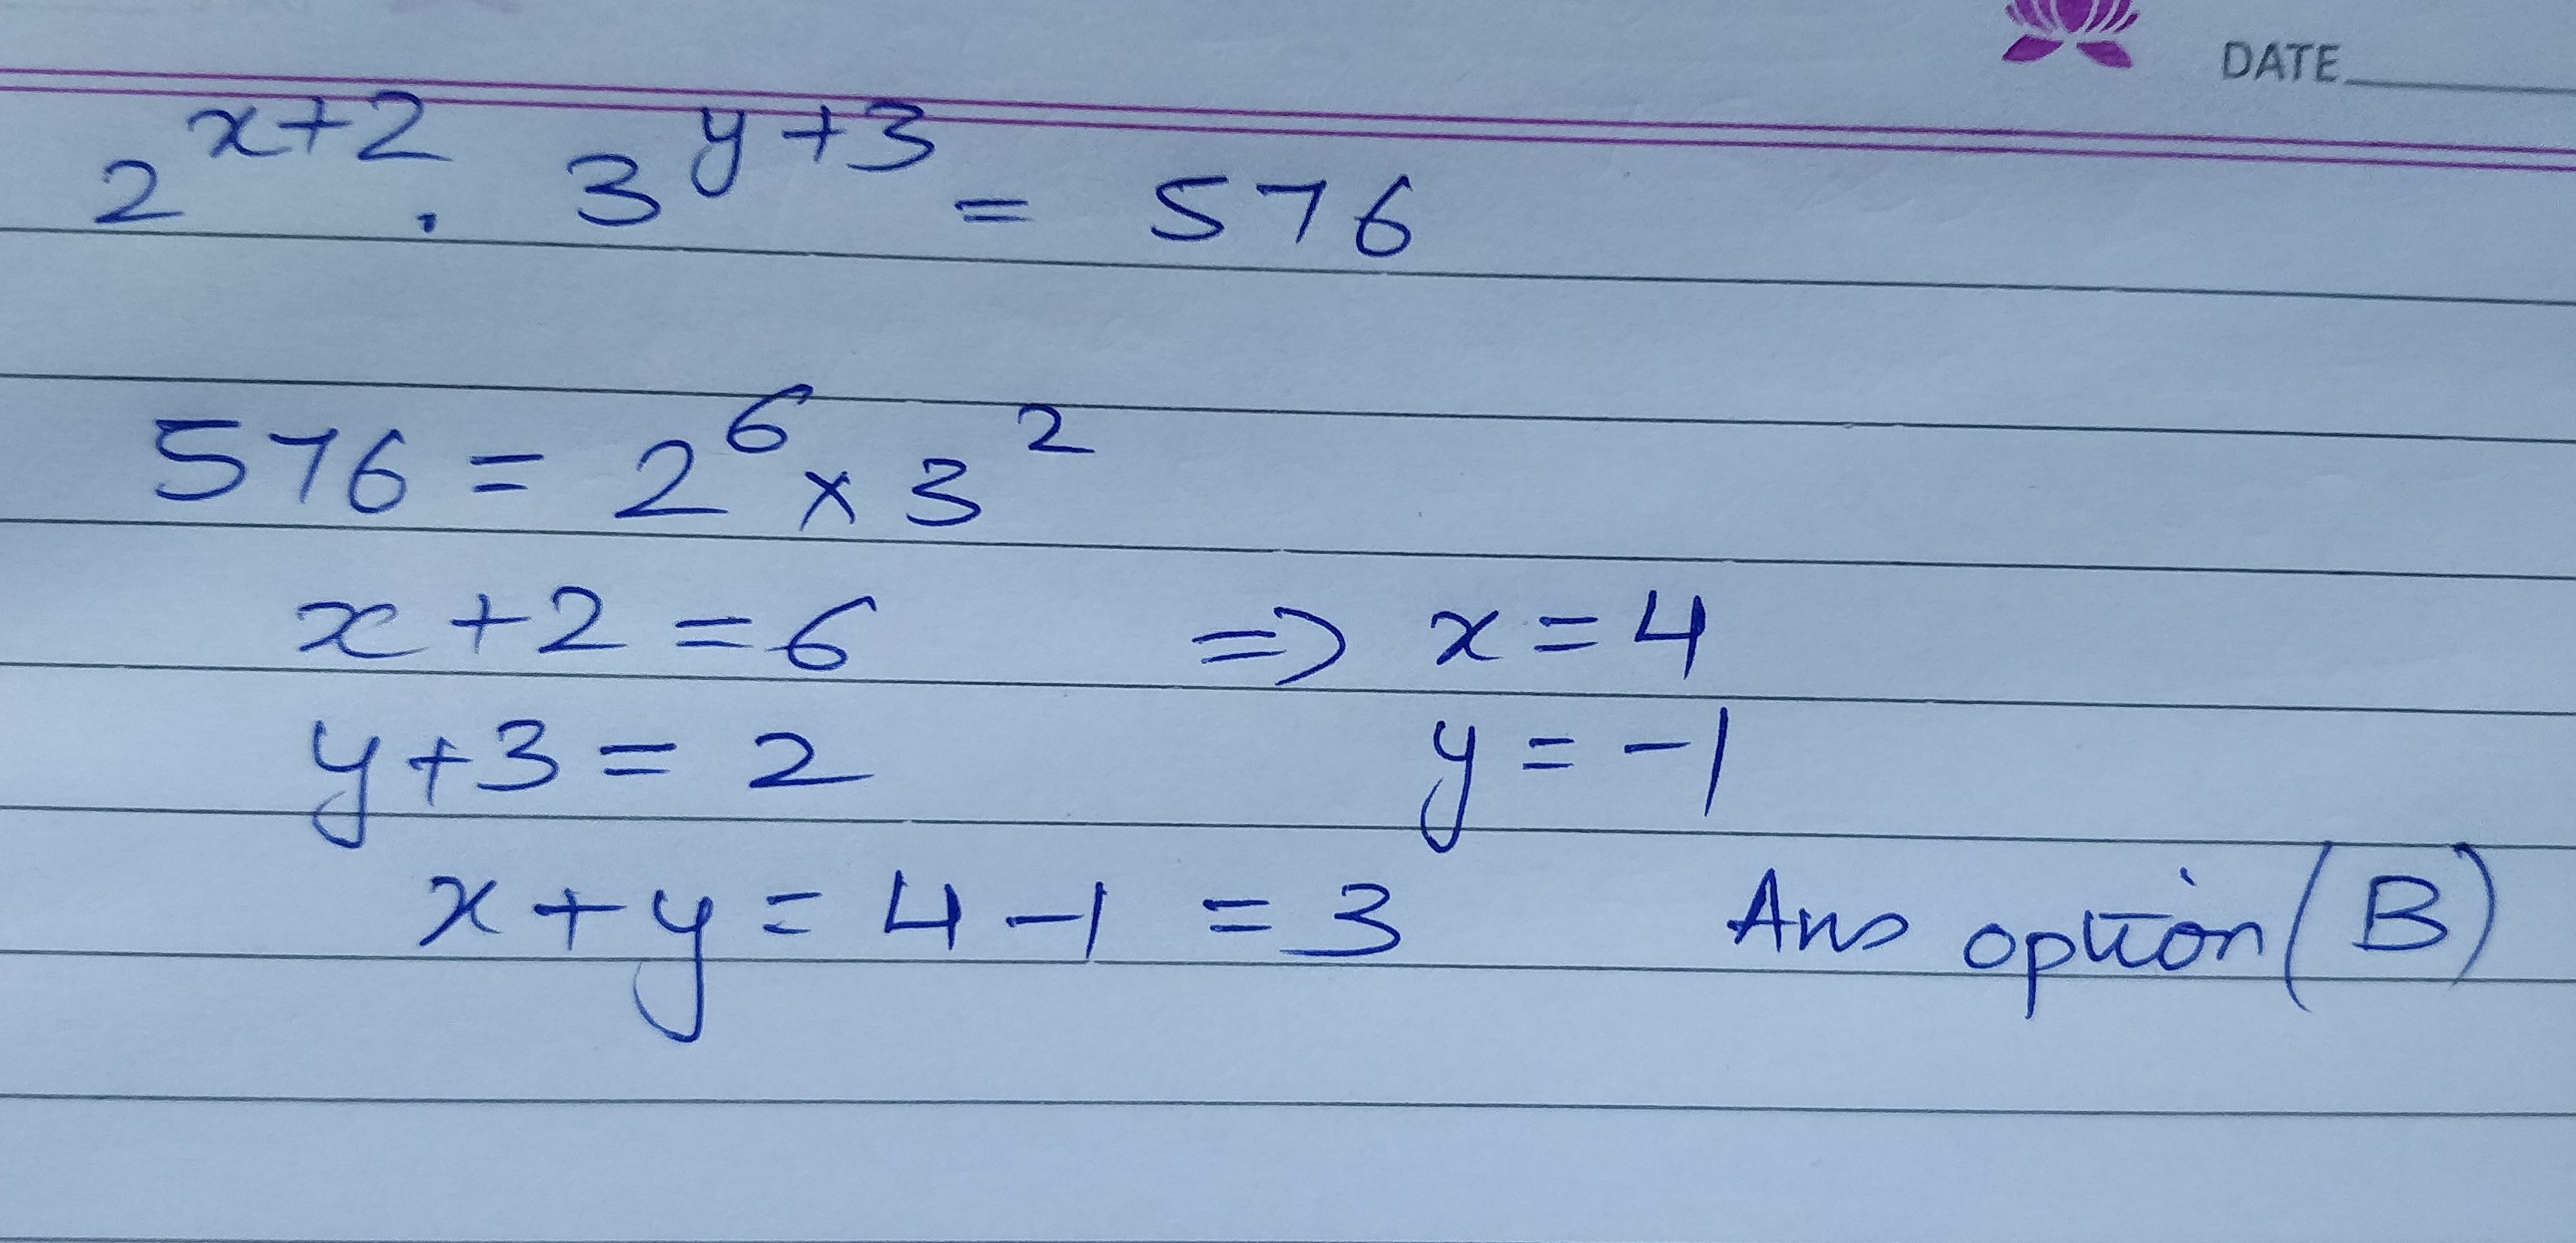 DATE
2^{x+2} . 3^{y+3} = 576
576 = 2^6 × 3^2
x + 2 = 6 => x = 4
y + 3 = 2 y = -1
x + y = 4 - 1 = 3 Ans option (B)